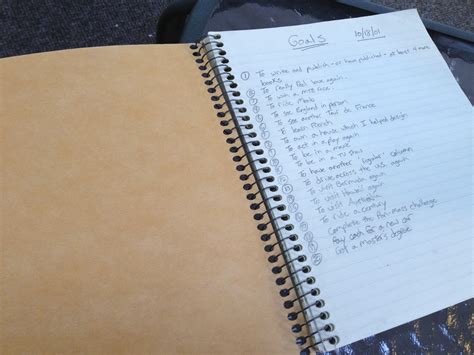 Goals 10/18/01
① To write and publish - or have published - at least 2 more
books.
To really feel love again.
To win a race.
To ride
To see England in person.
To see another Tour de France
To learn French
To own a house which I helped design
To act in a play again
To be in a movie
To be in a TV show
To have another "regular" column
To drive across the US again
To visit Bermuda again
To visit Hawaii again
To visit Australia
To ride a century
Complete the Pan-Mass challenge
Pay cash for a new car
Get a master's degree